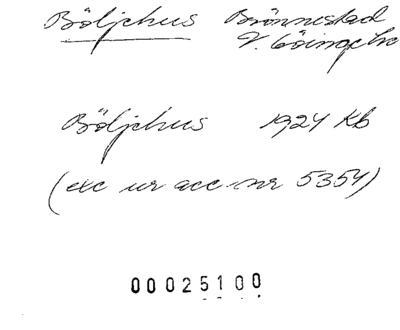 Böljehus Brönnestad
V. Göinge hd
Böljehus 1924 Kb
(exc ur acc nr 5354)
00025100